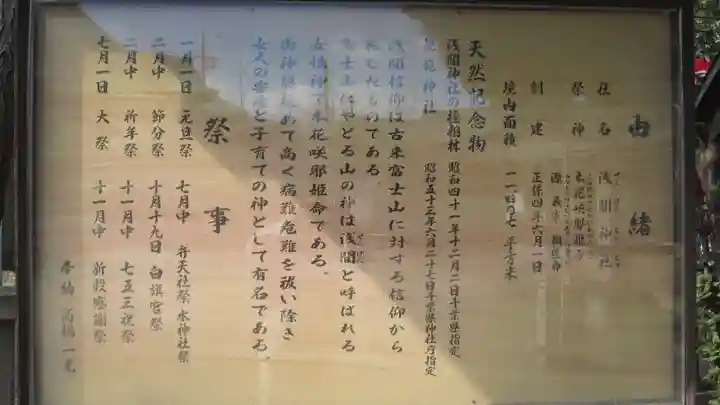 由緒
社名 浅間神社
祭神 木花咲耶姫命
創建 正保四年六月一日
境内面積 平方米
天然記念物
浅間神社の極相林 昭和四十一年十二月二日千葉県指定
規範神社 昭和五十三年六月二十七日千葉県神社庁指定
浅間信仰は古来富士山に対する信仰から
おこったものである
富士山にやどる山の神は浅間と呼ばれる
女性神で木花咲耶姫命である。
御神徳極めて高く病難危難を祓い除き
女人の安産と子育ての神として有名である。
祭事
一月一日 元旦祭 七月中 弁天社祭 水神社祭
二月中 節分祭 十月十九日 白旗宮祭
二月中 祈年祭 十一月中 七五三祝祭
七月一日 大祭 十一月中 新穀感謝祭
奉納 高橋一